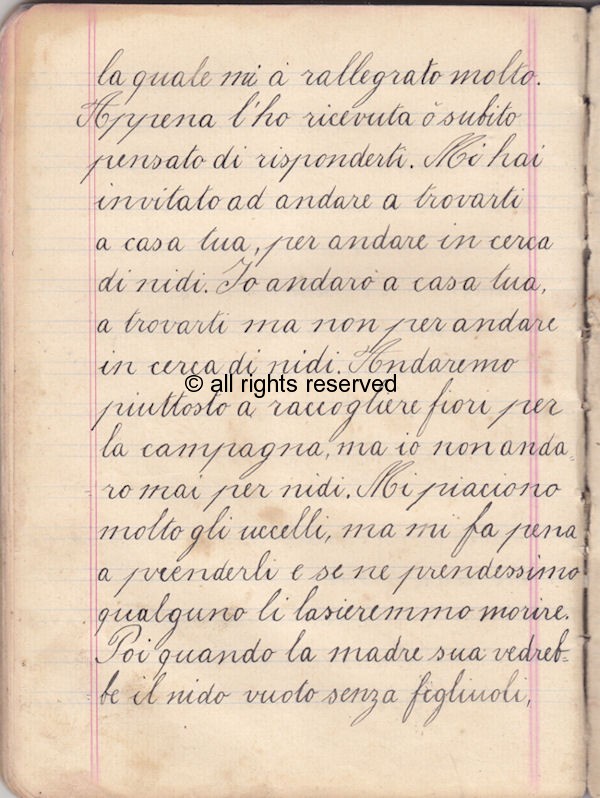 la quale mi à rallegrato molto.
Appena l'ho ricevuta ò subito
pensato di risponderti. Mi hai
invitato ad andare a trovarti
a casa tua, per andare in cerca
di nidi. Io andarò a casa tua,
a trovarti ma non per andare
in cerca di nidi. Andaremo
© all rights reserved
piuttosto a raccogliere fiori per
la campagna, ma io non anda-
rò mai per nidi. Mi piaciono
molto gli uccelli, ma mi fa pena
a preenderli e se ne prendessimo
qualguno li lasieremmo morire.
Poi quando la madre sua vedreb-
be il nido vuoto senza figliuoli,